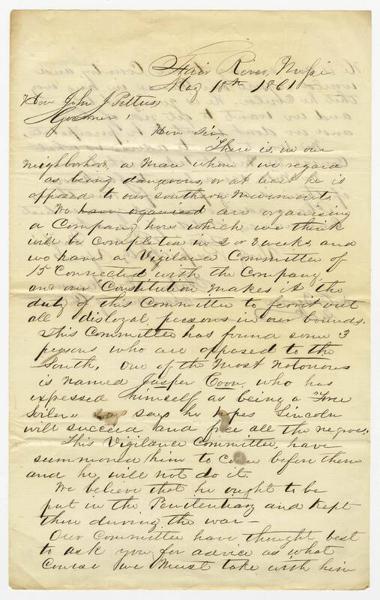 Fair River, Missi
May 18th 1861
Hon John J Pettus
Governor!
Hon Sir
There is in our
neighborhood a man whom we regard
as being dangerous, or at least he is
opposed to our southern movements
We have organised are organising
a Company here which we think
will be Completed in 2 or 3 weeks, and
we have a Vigilance Committee of
15 Connected with the Company
and our Constitution makes it the
duty of this Committee to ferret out
all disloyal persons in our bounds.
This Committee has found some 3
persons who are opposed to the
South, One of the Most Notorious
is named Jasper Coon, who has
expressed himself as being a "Free
says he hopes Lincoln
will succeed and free all the negroes
This Vigilance Committee, have
summoned him to Come before them
and he will not do it.
We believe that he ought to be
put in the Penitentiary and kept
there during the war—
Our Committee have thought best
to ask you for advice as what
Course we Must take with him